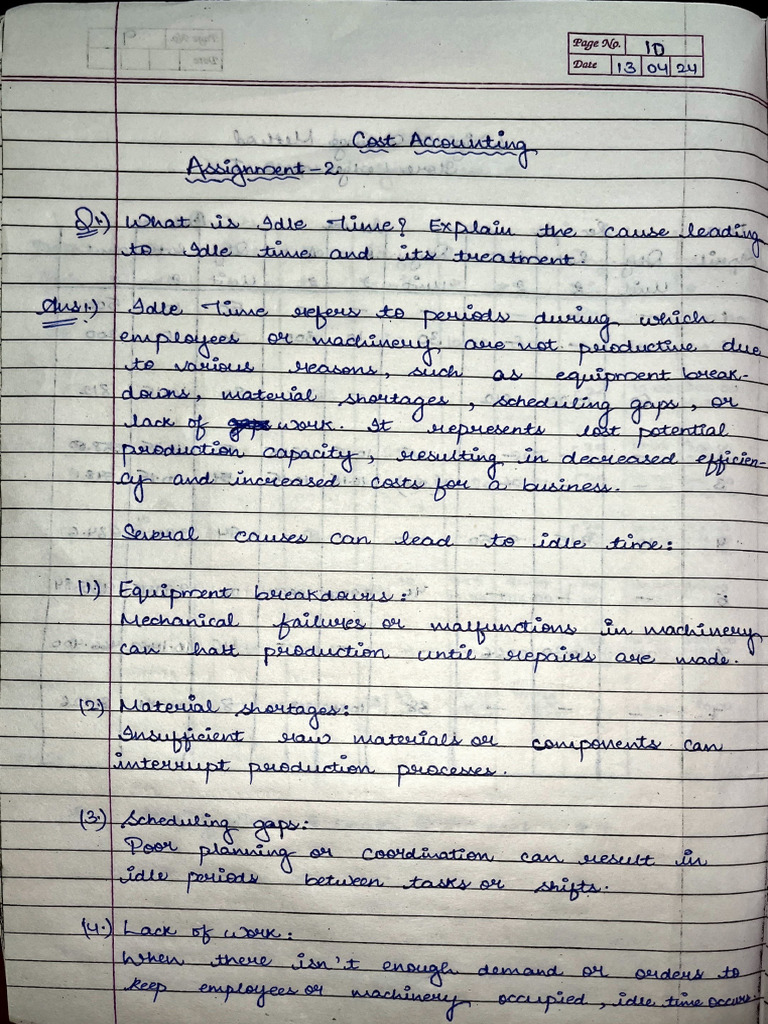 Page No. 10
Date 13 04 24
Cost Accounting
Assignment-2
Q1.) What is Idle Time? Explain the cause leading
to Idle time and its treatment.
Ans1.) Idle Time refers to periods during which
employees or machinery are not productive due
to various reasons, such as equipment break-
downs, material shortages, scheduling gaps, or
lack of work. It represents lost potential
production capacity, resulting in decreased efficien-
cy and increased costs for a business.
Several causes can lead to idle time:
(1.) Equipment breakdowns:
Mechanical failures or malfunctions in machinery
can halt production until repairs are made.
(2.) Material shortages:
Insufficient raw materials or components can
interrupt production processes.
(3.) Scheduling gaps:
Poor planning or coordination can result in
idle periods between tasks or shifts.
(4.) Lack of work:
When there isn't enough demand or orders to
keep employees or machinery occupied, idle time occurs.